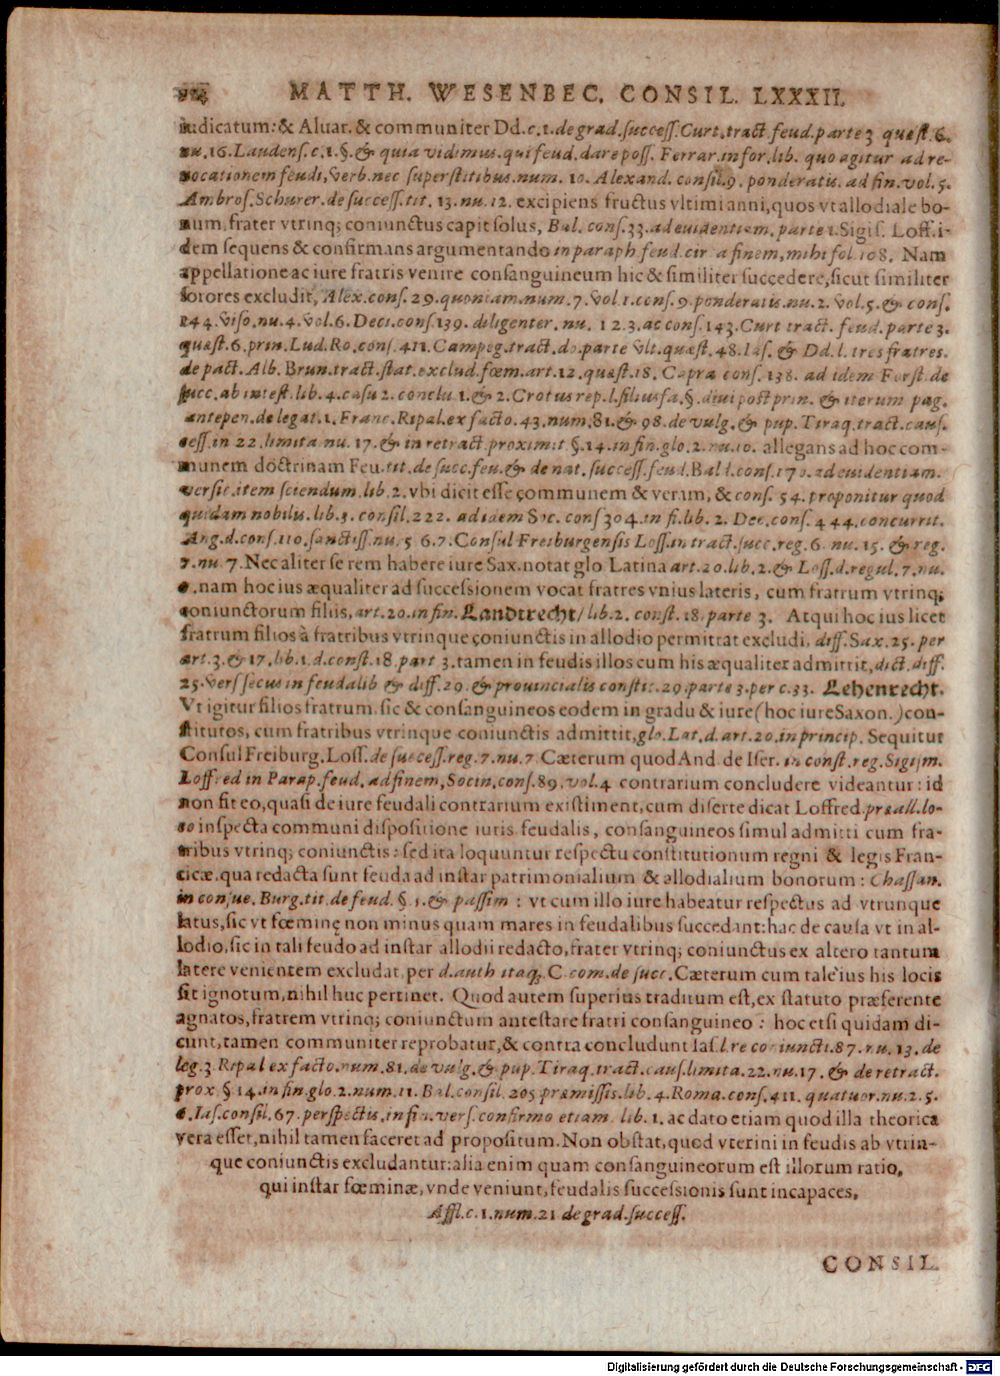 MATTH. WESENBEC. CONSIL. LXXXII.
iudicatum: & Aluar. & communiter Dd. c. 1. de grad. success. Curt. tract. feud. parte 3 quest. 6.
nu. 16. Laudens. c. 1. §. & quia vidimus. qui feud. dare poss. Ferrar. in for. lib. quo agitur ad re-
uocationem feudi, verb. nec superstitibus. num. 10. Alexand. consil. 9. ponderatis. ad fin. vol. 5.
Ambros. Schurer. de success. tit. 13. nu. 12. excipiens fructus vltimi anni, quos vt allodiale bo-
num, frater vtrinq; coniunctus capit solus, Bal. cons. 33. ad euidentiam. parte 1. Sigis. Loff. i-
dem sequens & confirmans argumentando in paraph feud. cir a finem, mihi fol. 108. Nam
appellatione ac iure fratris venire consanguineum hic & similiter succedere, sicut similiter
sorores excludit, Alex. cons. 29. quoniam. num. 7. Vol. 1. cons. 9. ponderatis. nu. 2. Vol. 5. & cons.
144. viso. nu. 4. Vol. 6. Deci. cons. 139. diligenter. nu. 1 2. 3. ac cons. 143. Curt tract. feud. parte 3.
quæst. 6. prin. Lud. Ro. cons. 411. Campeg. tract. do. parte vlt. quæst. 48. Ias. & Dd. l. tres fratres.
de pact. Alb. Brun. tract. stat. exclud. fœm. art. 12. quæst. 18. Capra cons. 138. ad idem Forst. de
succ. ab intest. lib. 4. casu 2. conclu. 1. & 2. Crotus rep. l. filiusfa. §. diui post prin. & iterum pag.
antepen. de legat. 1. Franc. Ripal. ex facto. 43. num. 81. & 98. de vulg. & pup. Tiraq. tract. caus.
cess. in 22. limita nu. 17. & in retract. proximit §. 14. in fin. glo. 2. nu. 10. allegans ad hoc com-
munem doctrinam Feu. tit. de succ. feu. & de nat. success. feud. Bald. cons. 170. ad euidentiam.
versic. item sciendum. lib. 2. vbi dicit esse communem & veram, & cons. 54. proponitur quod
quidam nobilis. lib. 3. consil. 222. ad idem Soc. cons 304. in fi. lib. 2. Dec. cons. 444. concurrit.
Ang. d. cons. 110. sanctiss. nu. 5 6. 7. Consul Freiburgensis Loss. in tract. succ. reg. 6. nu. 15. & reg.
7. nu. 7. Nec aliter se rem habere iure Sax. notat glo Latina art. 20. lib. 2. & Loss. d. regul. 7. nu.
nam hoc ius æqualiter ad successionem vocat fratres vnius lateris, cum fratrum vtrinq;
coniunctorum filiis, art. 20. in fin. Landtrecht / lib. 2. const. 18. parte 3. Atqui hoc ius licet
fratrum filios à fratribus vtrinque coniunctis in allodio permittat excludi, diff. Sax. 25. per
art. 3. & 17. lib. 1. d. const. 18. part 3. tamen in feudis illos cum his æqualiter admittit, dict. diff.
25. vers secus in feudalib & diff. 29. & prouincialis constit. 29. parte 3. per c. 33. Lehenrecht.
Vt igitur filios fratrum. sic & consanguineos eodem in gradu & iure (hoc iure Saxon.) con-
stitutos, cum fratribus vtrinque coniunctis admittit, glo. Lat. d. art. 20. in princip. Sequitur
Consul Freiburg. Loss. de success. reg. 7. nu. 7 Cæterum quod And. de Iser. in const. reg. Sigism.
Loffred in Parap. feud. ad finem, Socin. cons. 89. vol. 4 contrarium concludere videantur: id
non fit eo, quasi de iure feudali contrarium existiment, cum diserte dicat Loffred. præall. lo-
co inspecta communi dispositione iuris feudalis, consanguineos simul admitti cum fra-
tribus vtrinq; coniunctis: sed ita loquuntur respectu constitutionum regni & legis Fran-
cicæ. qua redacta sunt feuda ad instar patrimonialium & allodialium bonorum: Chassan.
in consue. Burg. tit. de feud. §. 1. & passim : vt cum illo iure habeatur respectus ad vtrunque
latus, sic vt fœminę non minus quam mares in feudalibus succedant: hac de causa vt in al-
lodio, sic in tali feudo ad instar allodii redacto, frater vtrinq; coniunctus ex altero tantum
latere venientem excludat, per d. auth itaq; C com. de succ. Cæterum cum tale ius his locis
sit ignotum, nihil huc pertinet. Quod autem superius traditum est, ex statuto præferente
agnatos, fratrem vtrinq; coniunctum antestare fratri consanguineo : hoc etsi quidam di-
cunt, tamen communiter reprobatur, & contra concludunt Ias. l. re coniuncti. 87. nu. 13. de
leg. 3. Ripal ex facto. num. 81. de vulg. & pup. Tiraq. tract. caus. limita. 22. nu. 17. & de retract.
prox § 14. in fin glo. 2. num. 11. Bal. consil. 205 præmissis. lib. 4. Roma. cons. 411. quatuor. nu. 2. 5.
6. Ias. consil. 67. perspectis. in fin. vers. confirmo etiam. lib. 1. ac dato etiam quod illa theorica
vera esset, nihil tamen faceret ad propositum. Non obstat, quod vterini in feudis ab vtrin-
que coniunctis excludantur: alia enim quam consanguineorum est illorum ratio,
qui instar fœminæ, vnde veniunt, feudalis successionis sunt incapaces,
Affl. c. 1. num. 21 de grad. success.
CONSIL.
Digitalisierung gefördert durch die Deutsche Forschungsgemeinschaft - DFG